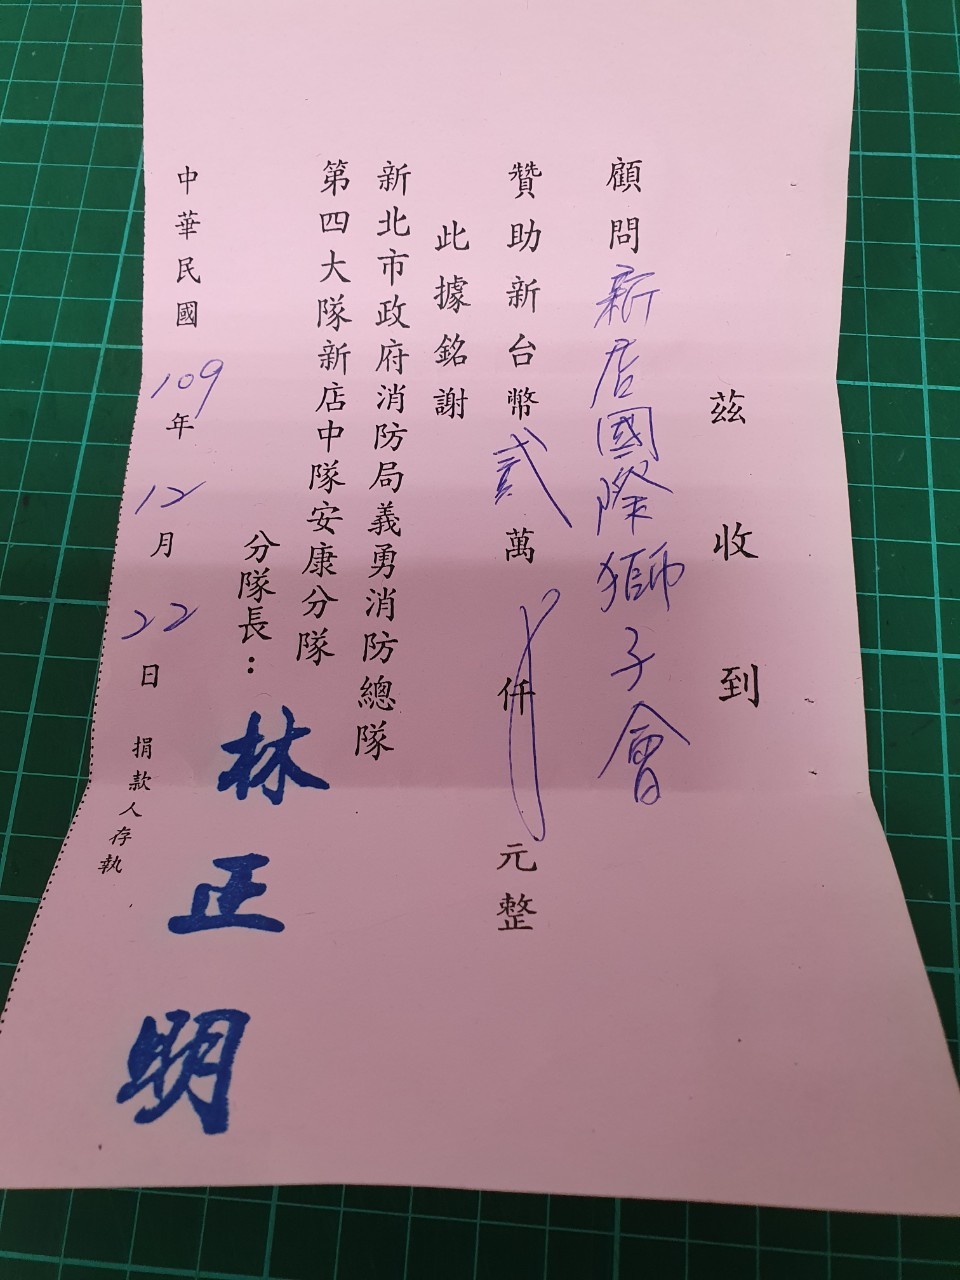 茲收到
顧問新店國際獅子會
贊助新台幣貳萬仟元整
此據銘謝
新北市政府消防局義勇消防總隊
第四大隊新店中隊安康分隊
分隊長：林正明
中華民國109年12月22日
捐款人存執